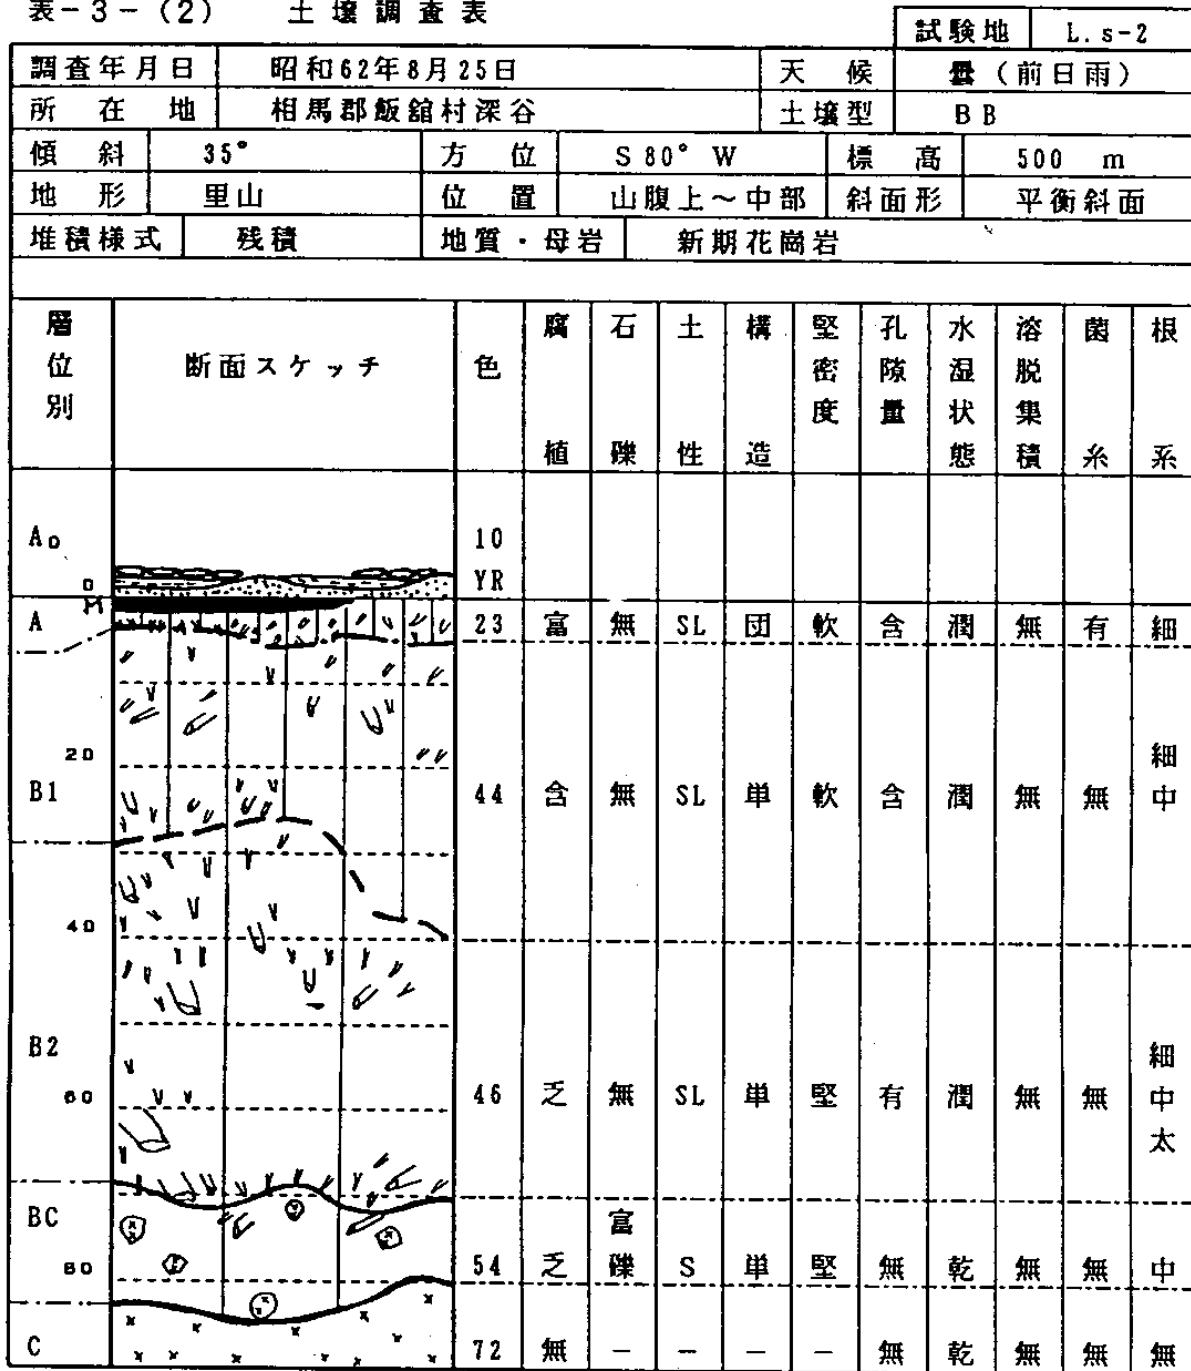 表-3-(2) 土壌調査表
試験地 L.s-2
調査年月日 昭和62年8月25日 天候 曇(前日雨)
所在地 相馬郡飯舘村深谷 土壌型 BB
傾斜 35° 方位 S80°W 標高 500 m
地形 里山 位置 山腹上~中部 斜面形 平衡斜面
堆積様式 残積 地質・母岩 新期花崗岩
層位別 断面スケッチ 色 腐植 石礫 土性 構造 堅密度 孔隙量 水湿状態 溶脱集積 菌糸 根系
A0 10YR
0
M
A 23 富 無 SL 団 軟 含 潤 無 有 細
20
B1 44 含 無 SL 単 軟 含 潤 無 無 細中
40
B2 46 乏 無 SL 単 堅 有 潤 無 無 細中太
60
BC 54 乏 富礫 S 単 堅 無 乾 無 無 中
80
C 72 無 - - - - 無 乾 無 無 無